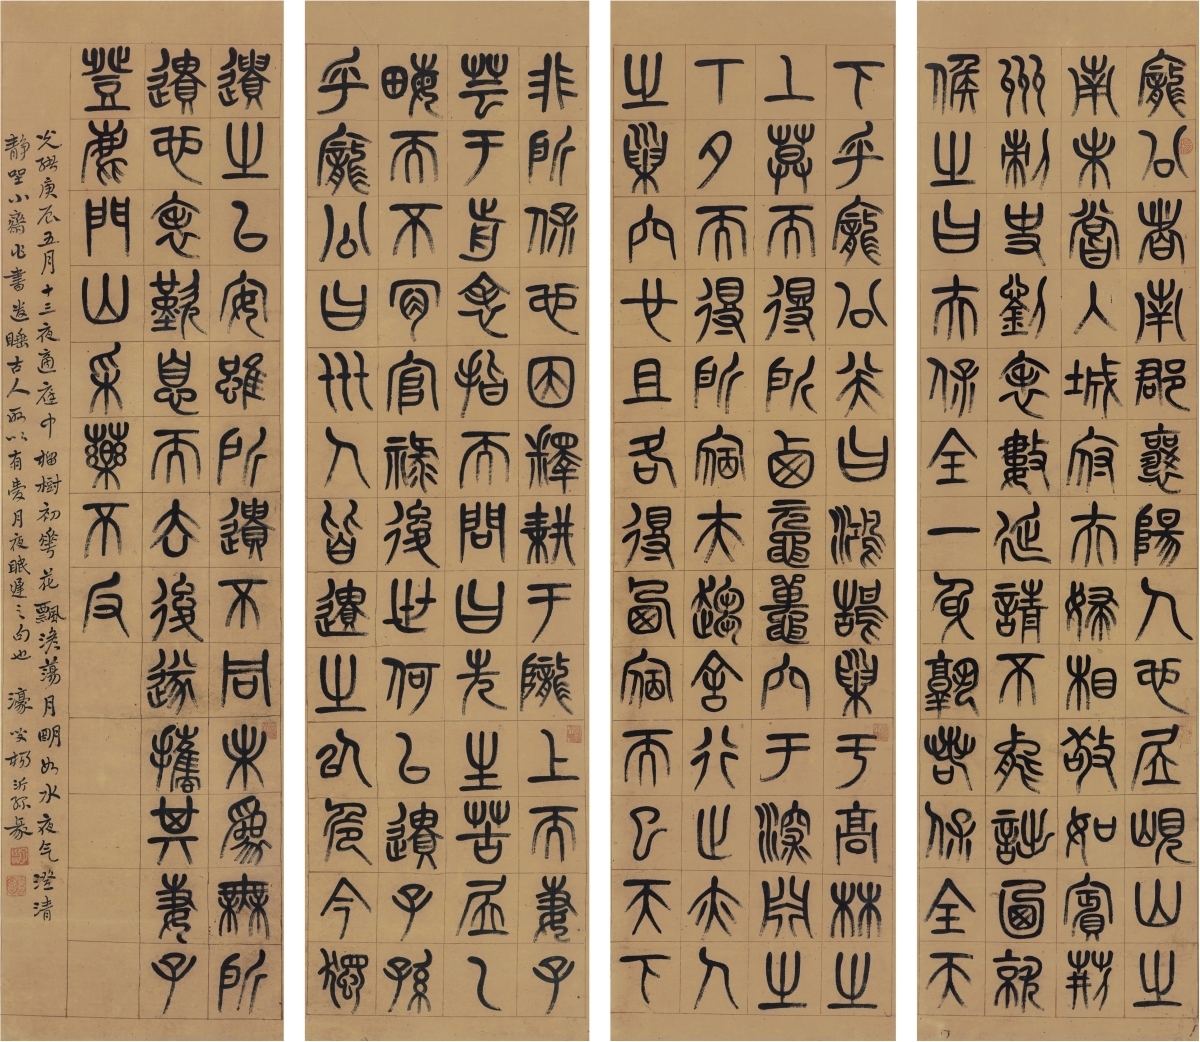 龐公者南郡襄陽人也居峴山之
南未嘗入城府夫婦相敬如賓荊
州刺史劉表數延請不能詘乃就
候之曰夫保全一身孰若保全天
下乎龐公笑曰鴻鵠巢于高林之
上莫而得所西黿鼉穴于深淵之
下夕而得所宿夫趨舍行止亦人
之巢穴也且各得西宿而已天下
非所保也因釋耕于隴上而妻子
芸于前表指而問曰先生苦居𡿨
畮而不肎官祿後世何以遺子孫
乎龐公曰世人皆遺之以危今獨
遺之以安雖所遺不同未為無所
遺也表歎息而去後遂攜其妻子
登鹿門山采藥不反
光緒庚辰五月十三夜適庭中榴樹初華花飄澹蕩月明如水夜气澄清
靜坐小齋作書忘睡古人所以有愛月夜眠遲之句也 濠叟楊沂孫篆